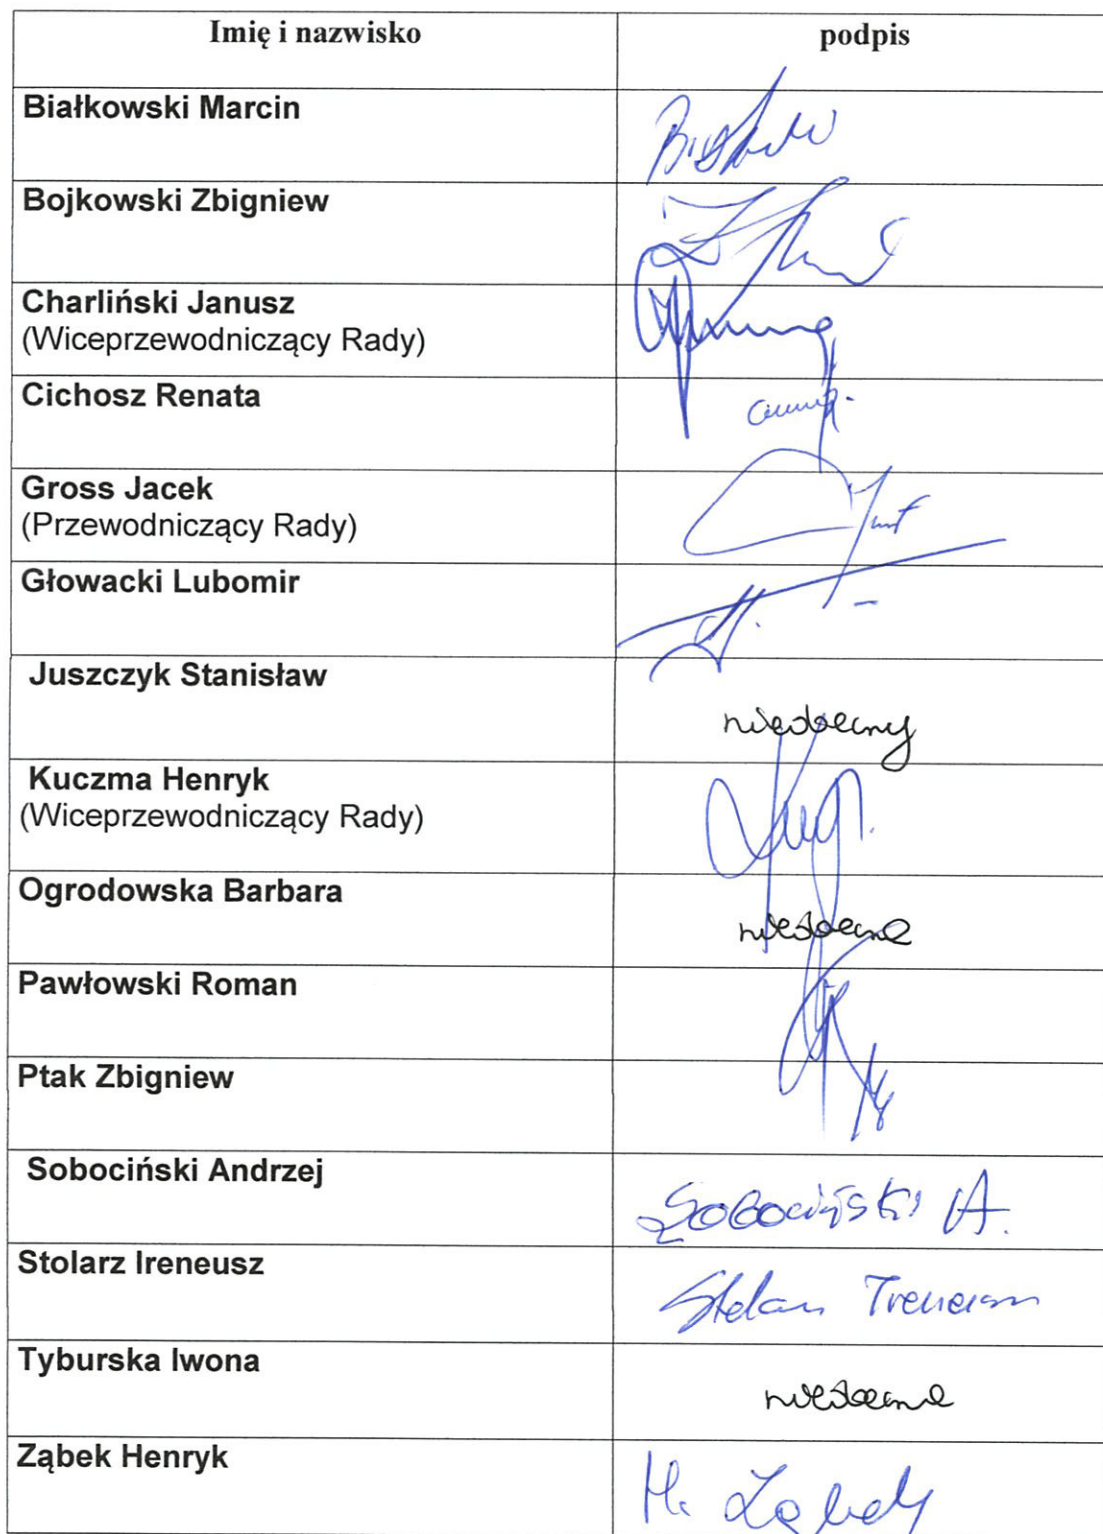 Imię i nazwisko podpis
Białkowski Marcin
Bojkowski Zbigniew
Charliński Janusz
(Wiceprzewodniczący Rady)
Cichosz Renata
Gross Jacek
(Przewodniczący Rady)
Głowacki Lubomir
Juszczyk Stanisław
nieobecny
Kuczma Henryk
(Wiceprzewodniczący Rady)
Ogrodowska Barbara
nieobecna
Pawłowski Roman
Ptak Zbigniew
Sobociński Andrzej
Sobociński A.
Stolarz Ireneusz
Ireneusz
Tyburska Iwona
nieobecna
Ząbek Henryk
H. Ząbek